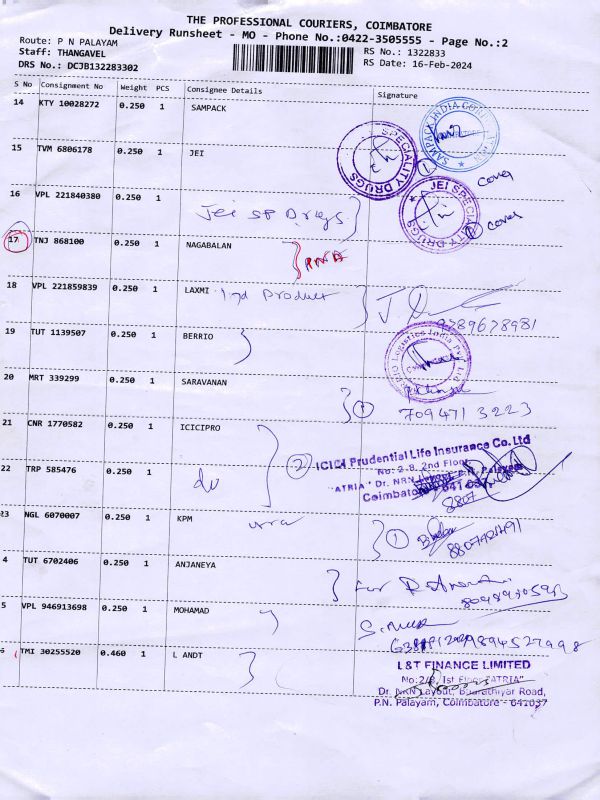 THE PROFESSIONAL COURIERS, COIMBATORE
Delivery Runsheet - MO - Phone No.:0422-3505555 - Page No.:2
Route: P N PALAYAM
Staff: THANGAVEL
DRS No.: DCJB132283302
RS No.: 1322833
RS Date: 16-Feb-2024
S No Consignment No Weight PCS Consignee Details Signature
14 KTY 10028272 0.250 1 SAMPACK
SAMPACK INDIA
SPECIALITY DRUGS
15 TVM 6806178 0.250 1 JEI
1 cover
16 VPL 221840380 0.250 1
Jei SP Drugs
JEI SPECIALITY DRUGS
cover
17 TNJ 868100 0.250 1 NAGABALAN
18 VPL 221859839 0.250 1 LAXMI Ind Product
9789678981
19 TUT 1139507 0.250 1 BERRIO
Logistics India Pvt. Ltd
20 MRT 339299 0.250 1 SARAVANAN
1
709471 3223
21 CNR 1770582 0.250 1 ICICIPRO
2 ICICI Prudential Life Insurance Co. Ltd
No: 2-8, 2nd Floor,
"ATRIA" Dr. NRN Layout, P.N. Palayam
Coimbatore - 641 037
22 TRP 585476 0.250 1
do
8807
23 NGL 6070007 0.250 1 KPM
1
4 TUT 6702406 0.250 1 ANJANEYA
for
5 VPL 946913698 0.250 1 MOHAMAD
9894527998
6 TMI 30255520 0.460 1 L ANDT
L&T FINANCE LIMITED
No:2/8, 1st Floor "ATRIA"
Dr. NRN Layout, Bharathiyar Road,
P.N. Palayam, Coimbatore - 641037